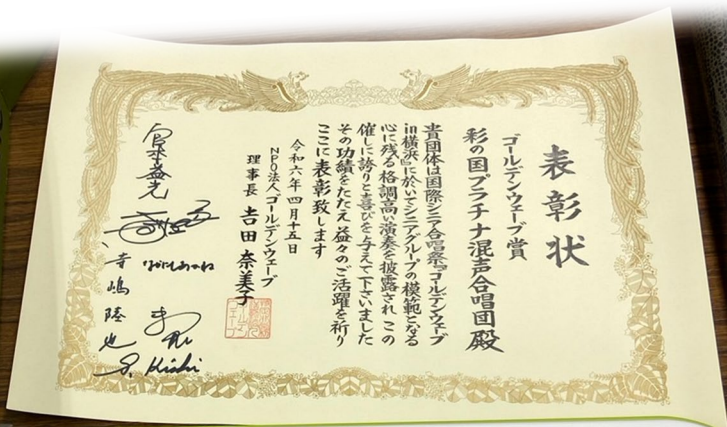 表彰状
ゴールデンウェーブ賞
彩の国プラチナ混声合唱団殿
貴団体は国際シニア合唱祭『ゴールデンウェーブ
in横浜』に於いてシニアグループの模範となる
心に残る格調高い演奏を披露され この
催しに誇りと喜びを与えて下さいました
その功績をたたえ 益々のご活躍を祈り
ここに表彰致します
令和六年四月十五日
NPO法人ゴールデンウェーブ
理事長 吉田奈美子
寺嶋陸也
S. Kishi